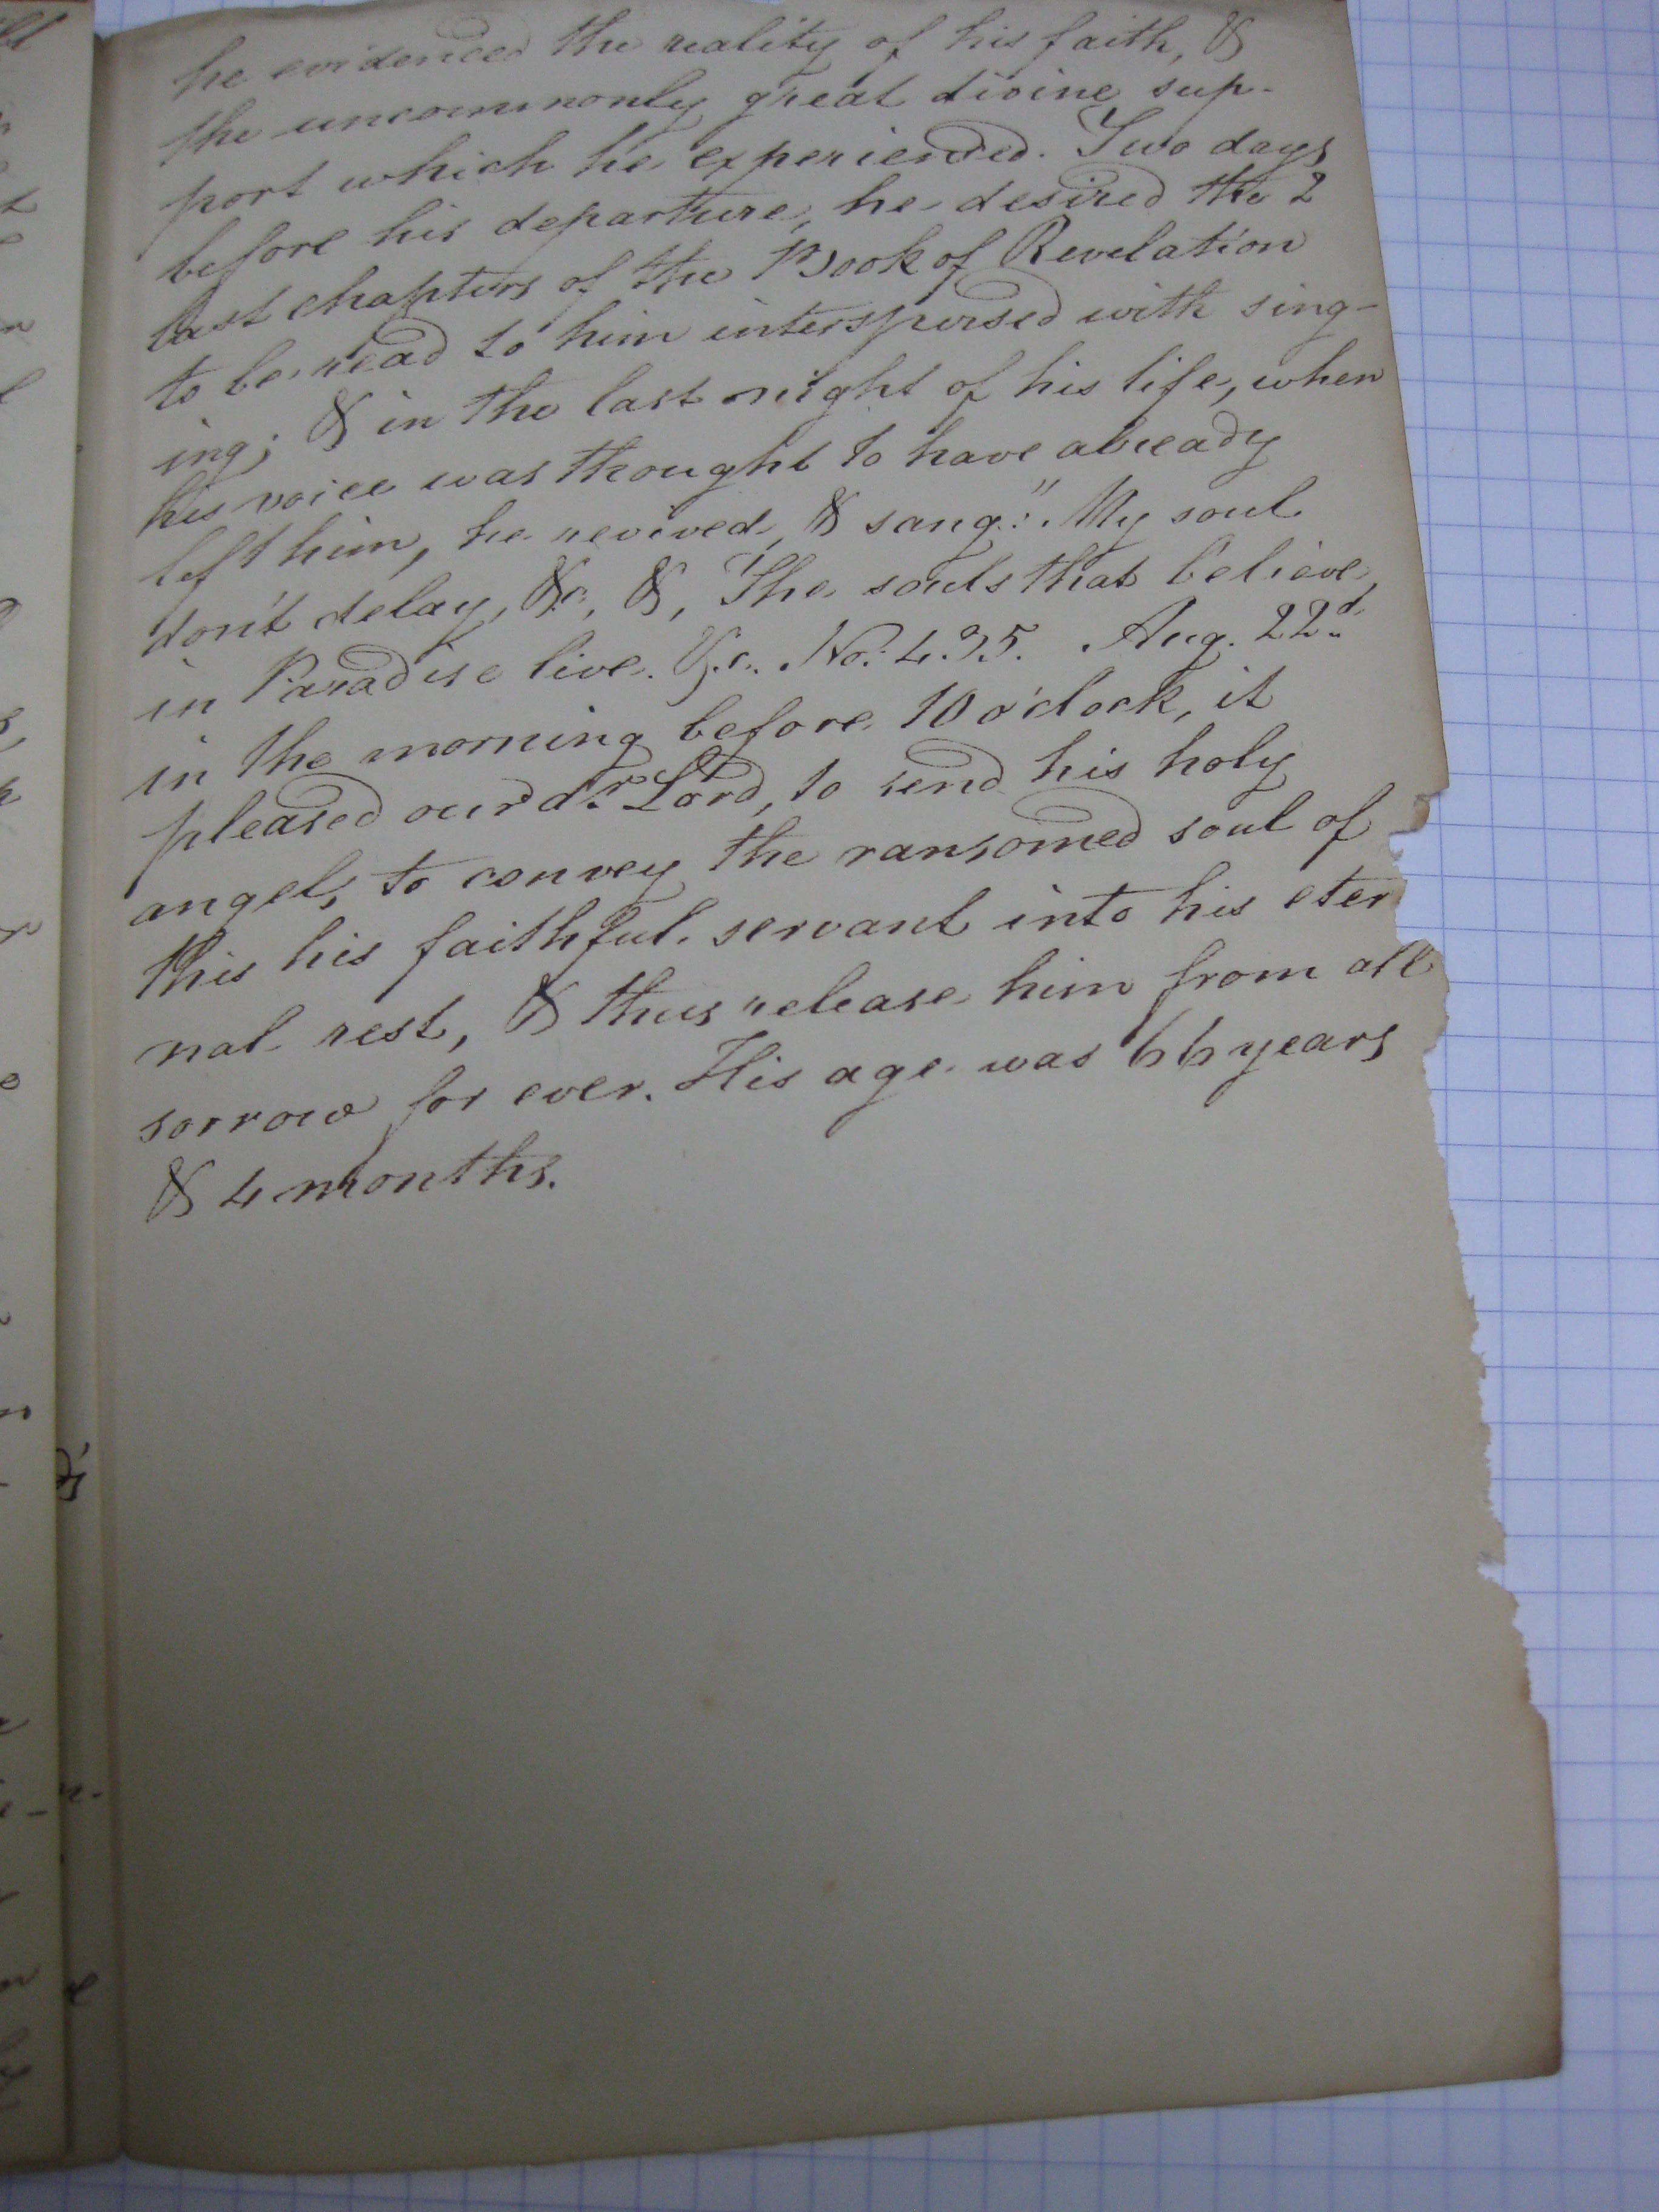 he evidenced the reality of his faith, &
the uncommonly great divine sup-
port which he experienced. Two days
before his departure, he desired the 2
last chapters of the Book of Revelation
to be read to him interspersed with sing-
ing; & in the last night of his life, when
his voice was thought to have already
left him, he revived, & sang: "My soul
don't delay, &c, &, The souls that believe,
in Paradise live. &.c. No. 435. Aug. 22d
in the morning before 10 o'clock, it
pleased our dr. Lord, to send his holy
angels, to convey the ransomed soul of
this his faithful servant into his eter
nal rest, & thus release him from all
sorrow for ever. His age was 66 years
& 4 months.